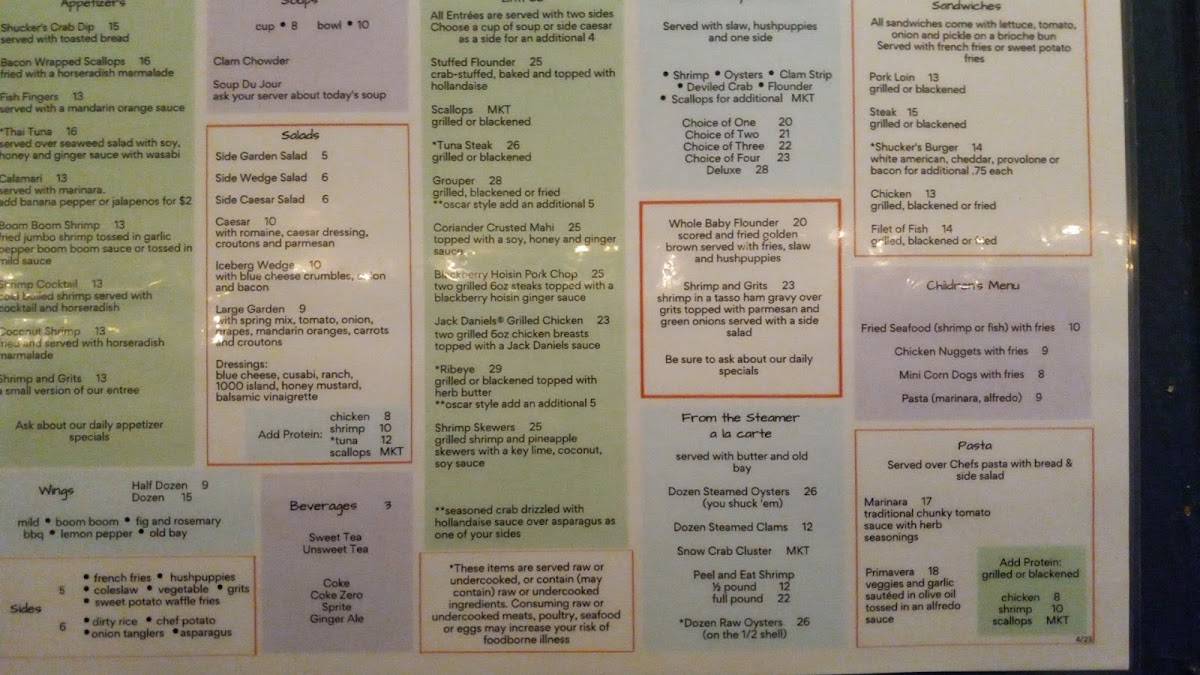 Appetizer's
Shucker's Crab Dip 15
served with toasted bread
Bacon Wrapped Scallops 16
fried with a horseradish marmalade
Fish Fingers 13
served with a mandarin orange sauce
*Thai Tuna 16
served over seaweed salad with soy,
honey and ginger sauce with wasabi
Calamari 13
served with marinara.
add banana pepper or jalapenos for $2
Boom Boom Shrimp 13
fried jumbo shrimp tossed in garlic
pepper boom boom sauce or tossed in
mild sauce
Shrimp Cocktail 13
cold boiled shrimp served with
cocktail and horseradish
Coconut Shrimp 13
fried and served with horseradish
marmalade
Shrimp and Grits 13
a small version of our entree
Ask about our daily appetizer
specials
Wings
Half Dozen 9
Dozen 15
mild • boom boom • fig and rosemary
bbq • lemon pepper • old bay
Sides
5
• french fries • hushpuppies
• coleslaw • vegetable • grits
• sweet potato waffle fries
6
• dirty rice • chef potato
• onion tanglers • asparagus
Soups
cup • 8 bowl • 10
Clam Chowder
Soup Du Jour
ask your server about today's soup
Salads
Side Garden Salad 5
Side Wedge Salad 6
Side Caesar Salad 6
Caesar 10
with romaine, caesar dressing,
croutons and parmesan
Iceberg Wedge 10
with blue cheese crumbles, onion
and bacon
Large Garden 9
with spring mix, tomato, onion,
grapes, mandarin oranges, carrots
and croutons
Dressings:
blue cheese, cusabi, ranch,
1000 island, honey mustard,
balsamic vinaigrette
Add Protein:
chicken 8
shrimp 10
*tuna 12
scallops MKT
Beverages 3
Sweet Tea
Unsweet Tea
Coke
Coke Zero
Sprite
Ginger Ale
All Entrées are served with two sides
Choose a cup of soup or side caesar
as a side for an additional 4
Stuffed Flounder 25
crab-stuffed, baked and topped with
hollandaise
Scallops MKT
grilled or blackened
*Tuna Steak 26
grilled or blackened
Grouper 28
grilled, blackened or fried
**oscar style add an additional 5
Coriander Crusted Mahi 25
topped with a soy, honey and ginger
sauce
Blackberry Hoisin Pork Chop 25
two grilled 6oz steaks topped with a
blackberry hoisin ginger sauce
Jack Daniels® Grilled Chicken 23
two grilled 6oz chicken breasts
topped with a Jack Daniels sauce
*Ribeye 29
grilled or blackened topped with
herb butter
**oscar style add an additional 5
Shrimp Skewers 25
grilled shrimp and pineapple
skewers with a key lime, coconut,
soy sauce
**seasoned crab drizzled with
hollandaise sauce over asparagus as
one of your sides
*These items are served raw or
undercooked, or contain (may
contain) raw or undercooked
ingredients. Consuming raw or
undercooked meats, poultry, seafood
or eggs may increase your risk of
foodborne illness
Served with slaw, hushpuppies
and one side
• Shrimp • Oysters • Clam Strip
• Deviled Crab • Flounder
• Scallops for additional MKT
Choice of One 20
Choice of Two 21
Choice of Three 22
Choice of Four 23
Deluxe 28
Whole Baby Flounder 20
scored and fried golden
brown served with fries, slaw
and hushpuppies
Shrimp and Grits 23
shrimp in a tasso ham gravy over
grits topped with parmesan and
green onions served with a side
salad
Be sure to ask about our daily
specials
From the Steamer
a la carte
served with butter and old
bay
Dozen Steamed Oysters 26
(you shuck 'em)
Dozen Steamed Clams 12
Snow Crab Cluster MKT
Peel and Eat Shrimp
½ pound 12
full pound 22
*Dozen Raw Oysters 26
(on the 1/2 shell)
Sandwiches
All sandwiches come with lettuce, tomato,
onion and pickle on a brioche bun
Served with french fries or sweet potato
fries
Pork Loin 13
grilled or blackened
Steak 15
grilled or blackened
*Shucker's Burger 14
white american, cheddar, provolone or
bacon for additional .75 each
Chicken 13
grilled, blackened or fried
Filet of Fish 14
grilled, blackened or fried
Children's Menu
Fried Seafood (shrimp or fish) with fries 10
Chicken Nuggets with fries 9
Mini Corn Dogs with fries 8
Pasta (marinara, alfredo) 9
Pasta
Served over Chefs pasta with bread &
side salad
Marinara 17
traditional chunky tomato
sauce with herb
seasonings
Primavera 18
veggies and garlic
sautéed in olive oil
tossed in an alfredo
sauce
Add Protein:
grilled or blackened
chicken 8
shrimp 10
scallops MKT
4/23